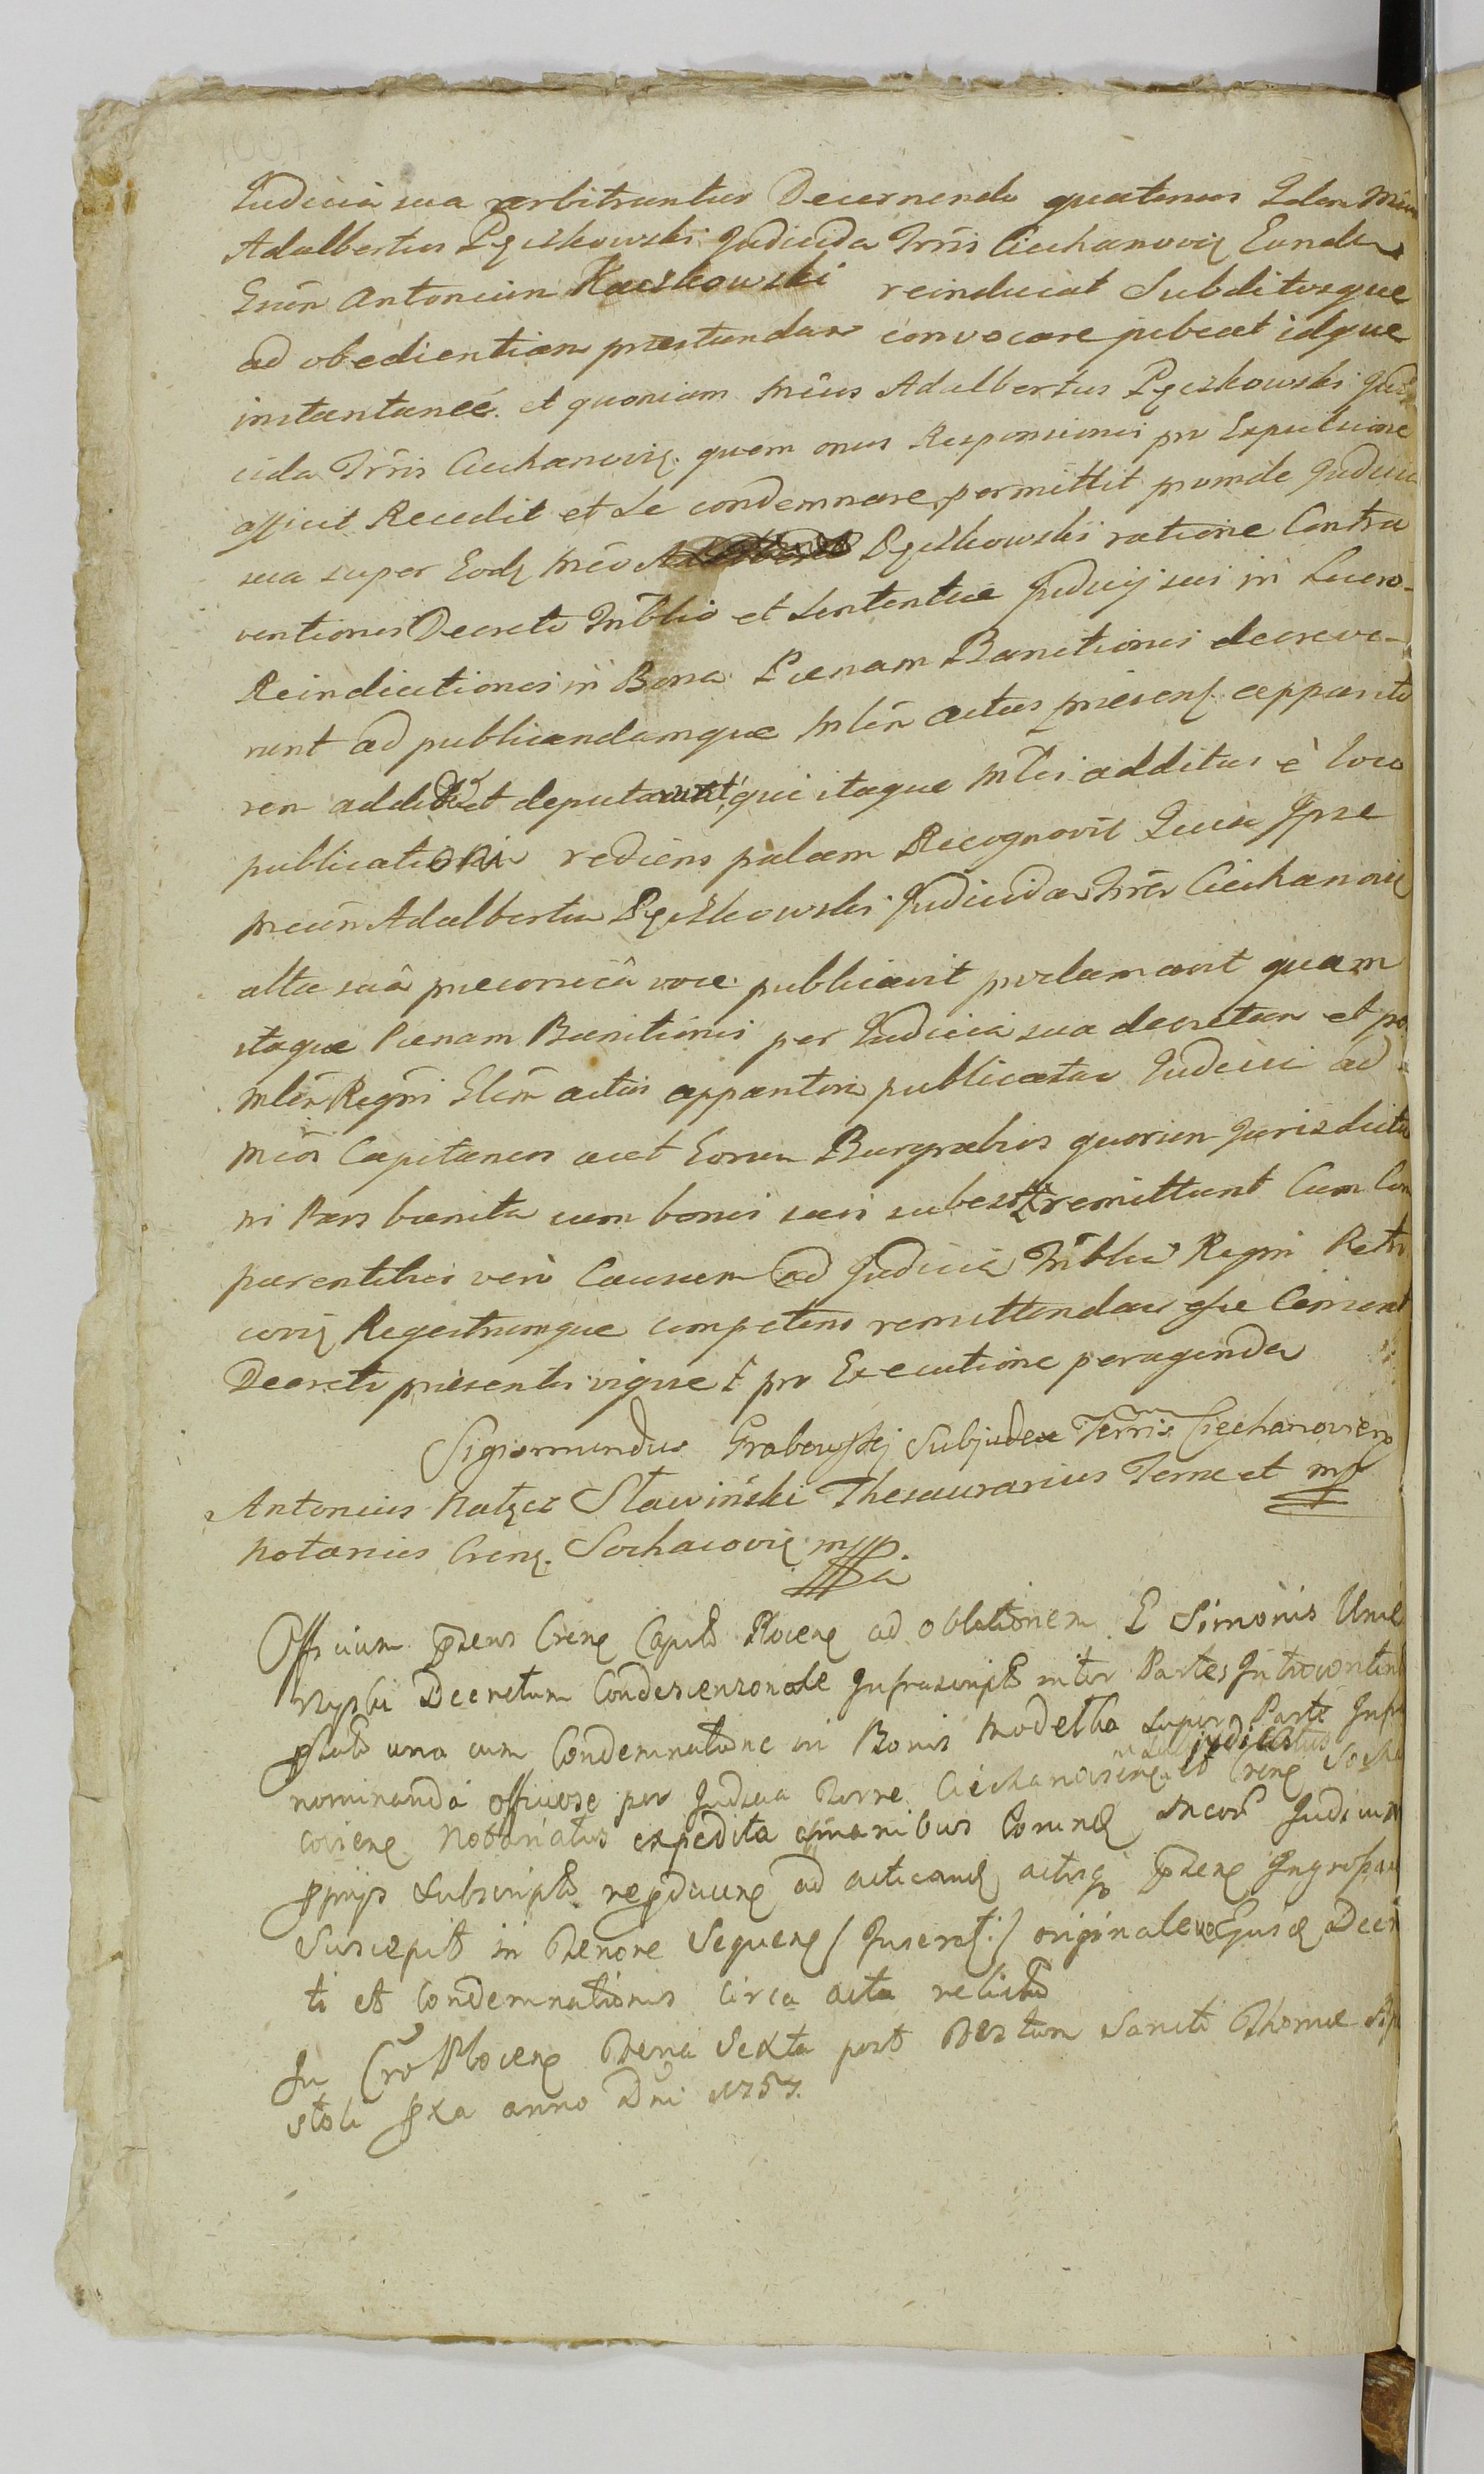 Judicia sua arbitrantur Decernendo quatenus Idem Mcus
Adalbertus Pęczkowski Judicida Trris Ciechanovię Eunde
Gnên Antonium Kaczkowski reinducat Subditosque
ad obedientiam præstandam convocare jubeat idque
instantaneé. et quoniam Mcus Adalbertus Pęczkowski Judi
cida Trris Ciechanovię. quem onus Responsionis pro Expulsione
afficit Recedit et Se condemnare permittit proinde Judicia
sua super Eodę Mco Pęczkowski ratione Contra
ventionis Decreti Trîblis et Sententiæ Judicij sui in
Reinductionis in Bona Pænam Banitionis decreve-
runt ad publicandamque Mlen actus præsenę apparito
rem addid et deputarunt, qui itaque Mlis additus è loco
publicationis rediens palam Recognovit Quia Ipse
Mcum Adalbertum Pęczkowski Judicidam Trris Ciechanovię
alta suâ præconicâ voce publicavit proclamavit quam
itaque Pænam Banitionis per Judicia sua decretam et per
Mlên Regni Glen actus apparitorem publicatam Judicia ad
Mcos Capitaneos aut Eorum Burgrabios quorum Jurisdictio
ni Pars banita cum bonis suis subest remittunt Cum Com
parentibus verò Causam ad Judicia Trîblia Regni Petri
covię Regestrumque competens remittendam esse Censent
Decreti præsentis vigore pro Executione peragenda
Sigismundus Grabowskj Subjudex Terris Ciechanoviens
Antonius Natęcz Sławiński Thesaurarius Terræ et mp
Notarius Crenę. Sochacovię mpp.
Officium Pręsens Crenę Capitᵗᵒ Płocenę ad oblationem G Simonis
Decretum Condescensionale Infrascriptᵗ inter Partes Introcontent
una cum Condemnatione in Bonis Modełka super Parte Infra
nominanda officiose per Judicia Terræ Ciechanoviensę Subjudicatus et Crenę Socha
covienę Notariatus expedita manibus Judicum
pprijs Subscriptᵗ ad acticandę actisqę Pręsenę Ingrossan
Suscepit in Tenore Sequenę / Inseratᵗ / originale Ejusdę Decre
ti et Condemnationis circa acta relictᵗ
In Cro Płocenę Feria Sexta post Festum Sancti Thomæ Ap
stoli pxa anno Dni 1757.